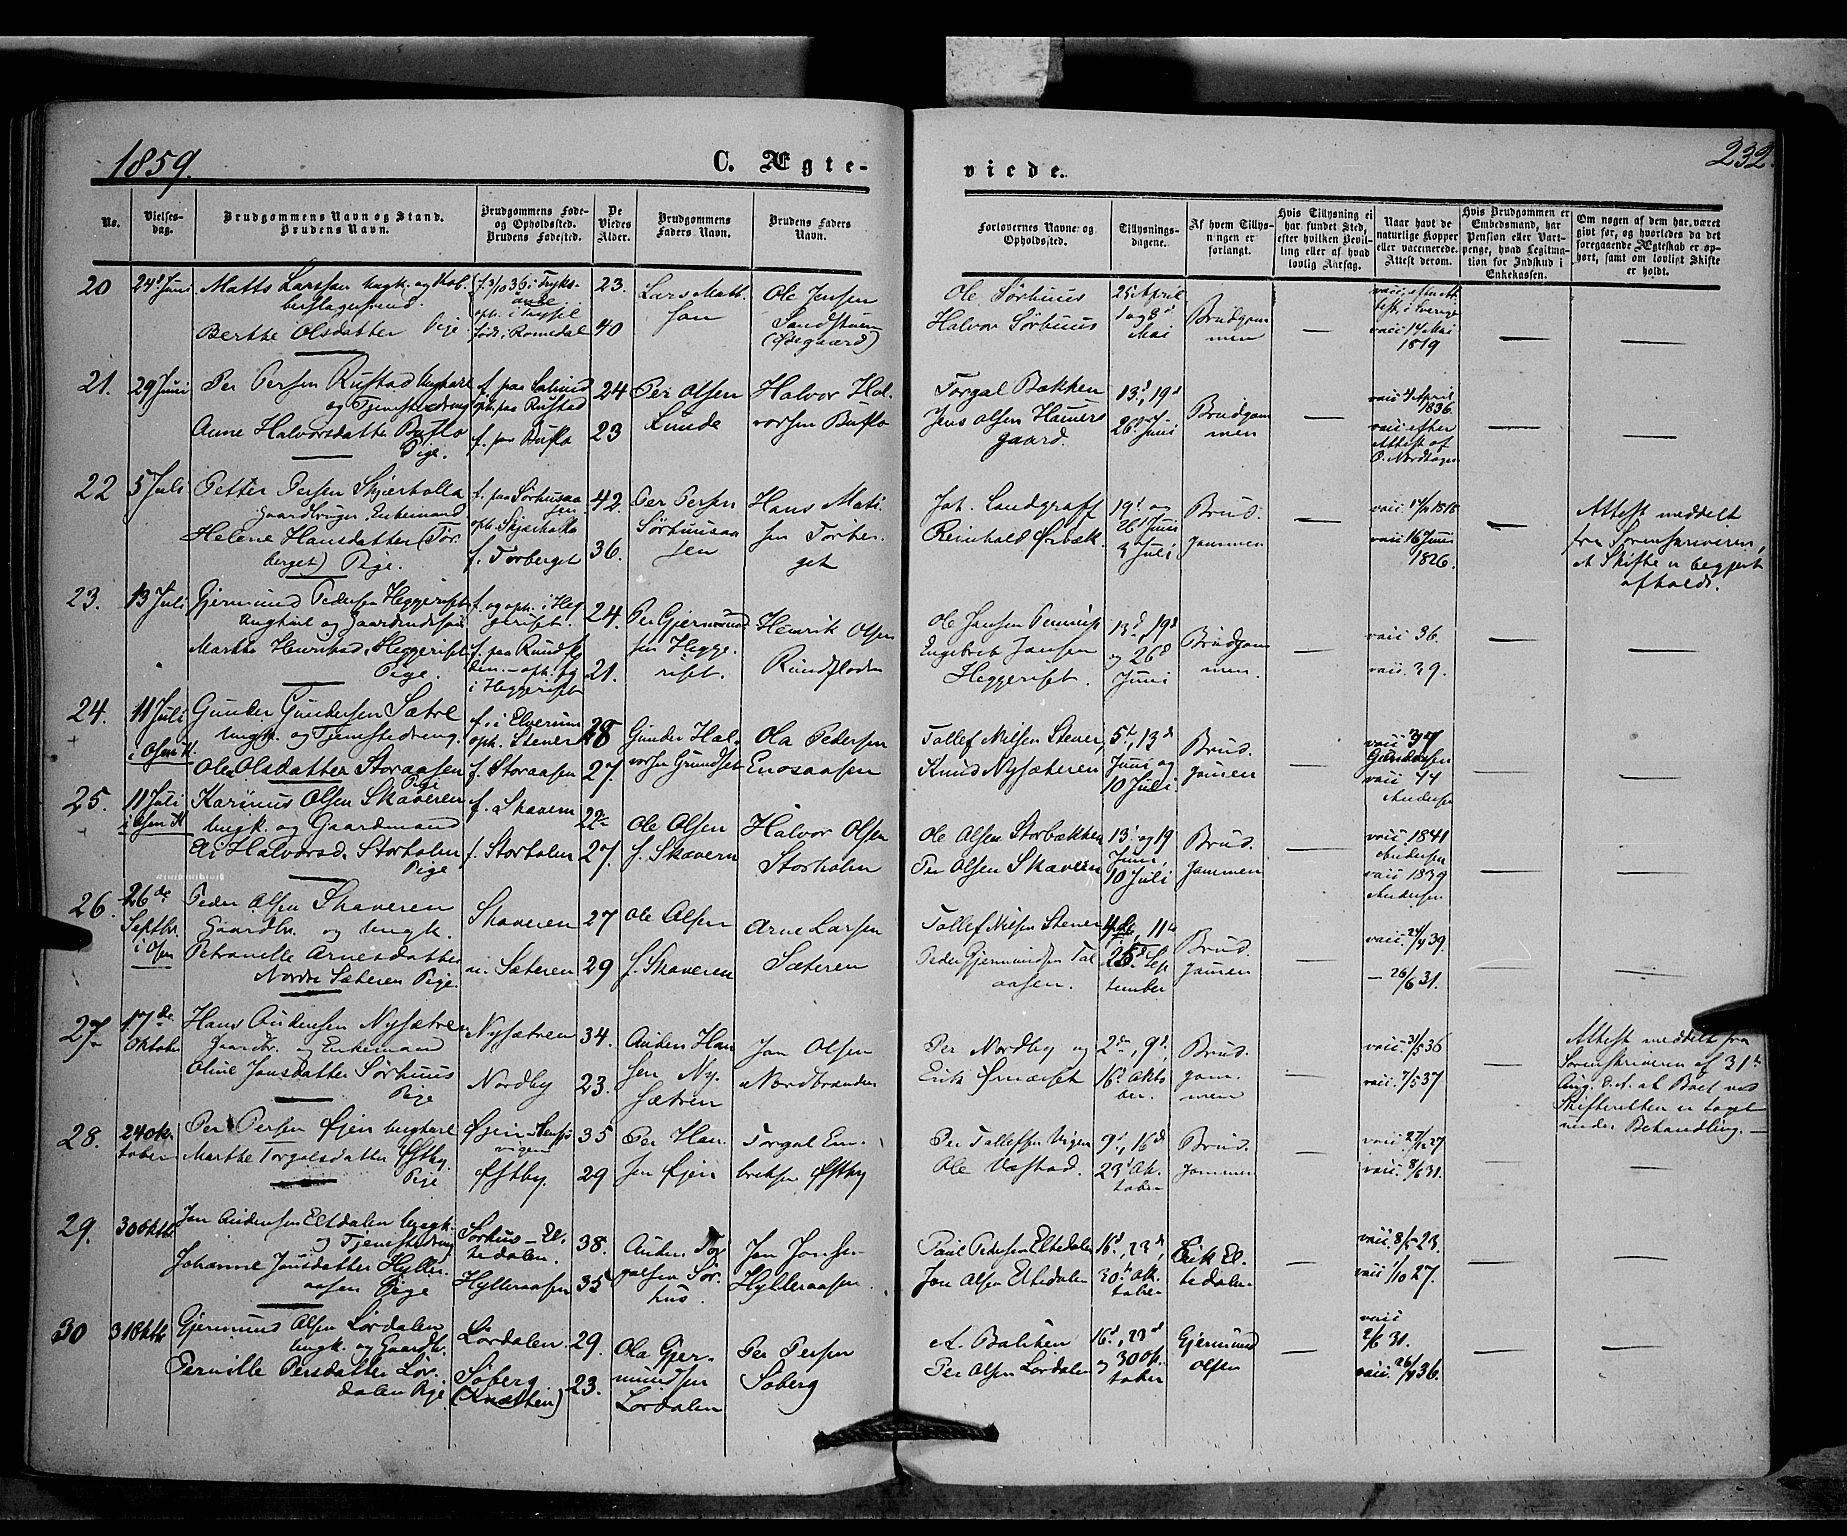 1859.
C. Ægte-
viede.
232.
No.
Vielses-
dag.
Brudgommens Navn og Stand.
Brudens Navn.
Brudgommens Føde-
og Opholdssted.
Brudens Fødested.
De
Viedes
Alder.
Brudgommens
Faders Navn.
Brudens Faders
Navn.
Forlovernes Navne og
Opholdssted.
Tillysnings-
dagene.
Af hvem Tillys-
ningen er
forlangt.
Hvis Tillysning ei
har fundet Sted,
efter hvilken Bevil-
ling eller af hvad
lovlig Aarsag.
Naar havt de
naturlige Kopper
eller vaccinerede.
Attest derom.
Hvis Brudgommen er
Embedsmand, har
Pension eller Vart-
penge, hvad Legitima-
tion for Indskud i
Enkekassen.
Om nogen af dem har været
givt før, og hvorledes da det
foregaaende Ægteskab er op-
hørt, samt om lovligt Skifte
er holdt.
20 24d Juni Matts Larssen ungk. og
Berthe Olsdatter Pige
f. i Tryks-
ande
oph. i Trysil
født i Romedal
23.
40
Lars Matt-
sen
Ole Jensen
Sandstuen
(Ødegaard)
Ole Sørhuus
Halvor Sørhuus
25 April
1 og 8d
Mai
Brudgom
men
vacc. efter At-
test i Sverige
vacc 14 Mai
1819
21. 29 Juni Per Persen Rustad Ungkarl
og Tjenestedreng
Anne Halvorsdatter Buflo
Pige.
oph. paa Rustad
f. paa Buflo
24
23
Per Olsen
Lunde
Halvor Hal-
vorsen Buflo
Torgal Bækken
Jens Olsen Hammers
gaard.
13d, 19d
26d Juni
Brudgom
men
vacc. April
1836.
vacc. efter
Attest af
22 5 Juli Petter Persen Skjærholla
Gaardbruger, Enkemand
Helene Hansdatter (Tør
berget) Pige.
f. paa Sørhusaa
sen
oph. Skjærholla
f. Tørberget
42.
36.
Per Persen
Sørhuusaa
sen
Hans Mati
sen Tørber-
get
Joh. Landgraff
Reinhold Ørbæk.
19d og
26d Juni
3d Juli
Brud-
gommen
vacc 1818
vacc 16 Juni
1826.
Attest meddelt
fra Sorenskriveren,
at Skifte er begjært
afholdt.
23. 13 Juli Gjermund Pedersen Heggeriset
Ungkarl og
Marthe Henriksd. Heggeriset
Pige.
f. og oph. i Heg
geriset.
f. paa Rundflo
den. – oph.
i Heggeriset
24.
21.
Per Gjermund
sen Hegge-
riset.
Henrik Olsen
Rundfloden
Ole Jansen
Engebret Jansen
Heggeriset.
13d, 19d
og 26d
Juni
Brudgom
men.
vacc 36.
vacc. 39.
24. 11 Juli
i Osen K.
Gunder Gundersen Sætre
Ungk. og Tjenestedreng.
Olea Olsdatter Storaasen
Pige
f. i Elverum
oph. Stener
f. Storaasen
28
27
Gunder Hal-
vorsen Grundset
Ola Pedersen
Enosaasen
Tollef Nilsen Stener,
Knud Nysæteren
5d, 13d
Juni og
10 Juli
Brud-
gommen
vacc
vacc 44
Andersen
25. 11 Juli
i Osen K
Karinus Olsen Skaveren
Ungk. og Gaardmand
Halvorsd. Storholen
Pige
f. Skaveren
f. Storholen
22
27
Ole Olsen
f. Skavern
Halvor Olsen
Storholen
Ole Olsen Storbækken
Per Olsen Skaveren
13d og 19
Juni,
10 Juli
Brud-
gommen
vacc. 1841
Andersen
vacc 1839
Andersen
26. 26de
Septbr.
i Osen
Peder Olsen Skaveren
Gaardbr. og Ungk.
Petronelle Arnesdatter
Nordre Sæteren Pige.
Skaveren
n. Sæteren
27
29
Ole Olsen
f. Skaveren
Arne Larsen
Sæteren
Tollef Nilsen Stener
Peder Gjermundsen Tal
aasen.
4de, 11te
25d Sep
tember
Brud-
gommen
vacc. 39.
– 26/6 31.
27. 17de
Oktober
Hans Andersen Nysætren
Gaardbr. og Enkemand
Oline Jonsdatter Sørhuus
Pige
Nysætren
Nordby
34.
23.
Anders Han
sen Ny-
sætren
Jon Olsen
Nordbranden
Per Nordby og
Erik Ørnæset
2den, 9d,
16d Okto
ber.
Brud-
gom-
men
vacc 31/5 36
vacc. 7/5 37
Attest meddelt fra
Sorenskriveren af 31te
Aug. d. A. at Boet ved
Skifteretten er taget
under Behandling. –
28. 24 Ok-
tober
Per Persen Øjen Ungkarl
Marthe Torgalsdatter Østby.
Pige
Øjen
Østby.
35
29
Per Han-
sen Øjen
Torgal Em-
bretsen Østby
Per Tollefsen Vigen
Ole Væstad.
9d, 16d
23d Ok-
tober
Brud-
gommen
vacc. 27
vacc. 8/6 31.
29. 30 Oktbr
Jon Andersen Eltdalen Ungk.
og Tjenestedreng
Johanne Jonsdatter Hyller-
aasen Pige
Sørhus – El-
tedalen.
Hylleraasen
38.
35
Anders Tor
galsen Sør-
hus.
Jon Jonsen
Hylleraasen.
Paul Pedersen Eltedalen
Jon Olsen Eltedalen
16d, 23d,
30d Ok-
tober
Erik El-
tedalen
vacc 23.
vacc 1/10 27.
30 31 Oktbr
Gjermund Olsen Lørdalen
Ungk. og Gaardbr.
Pernille Persdatter Lør-
dalen Pige
Lørdalen
Søberg
(Knætten)
29.
23.
Ola Gjer-
mundsen
Lørdalen
Per Persen
Søberg
A. Bakken
Per Olsen Lørdalen
16d, 23d
og 30 Ok-
tober
Gjermund
Olsen
vacc
2/6 31.
vacc. 36.